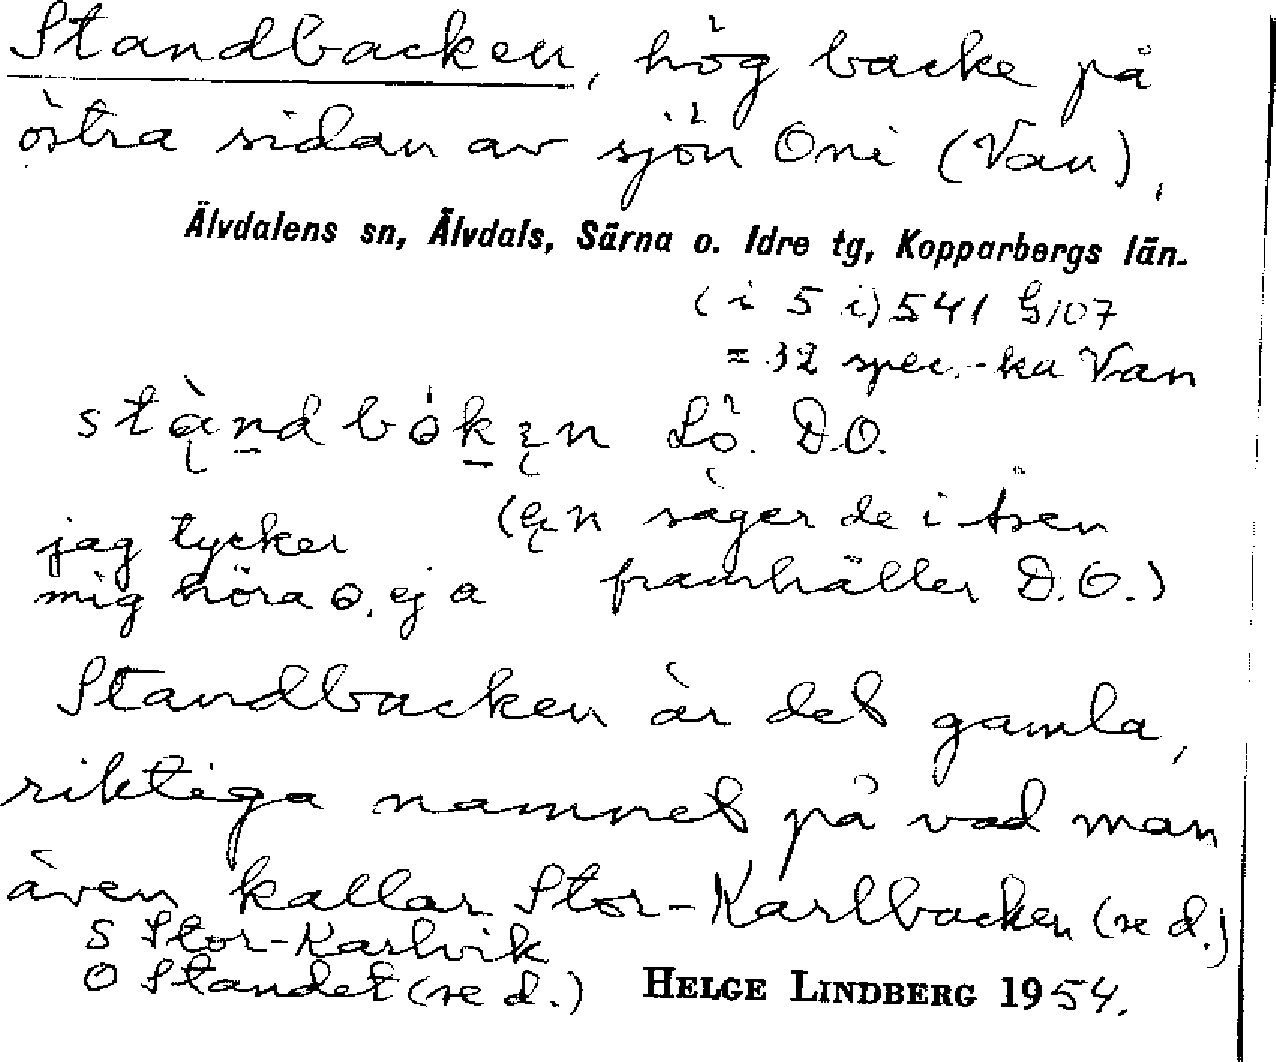 Standbacken, hög backe på
östra sidan av sjön Oni (Van),
Älvdalens sn, Älvdals, Särna o. Idre tg, Kopparbergs län.
(i 5 i) 541 G107
= 32 spec.-ka Van
Lö. D.O.
jag tycker (ęn säger de i åsen
mig höra o, ej a framhäller D.O.)
Standbacken är det gamla,
riktiga namnet på vad man
även kallar Stor-Karlbacken (se d.)
S Stor-Karlvik
O Standet (se d.) HELGE LINDBERG 1954.